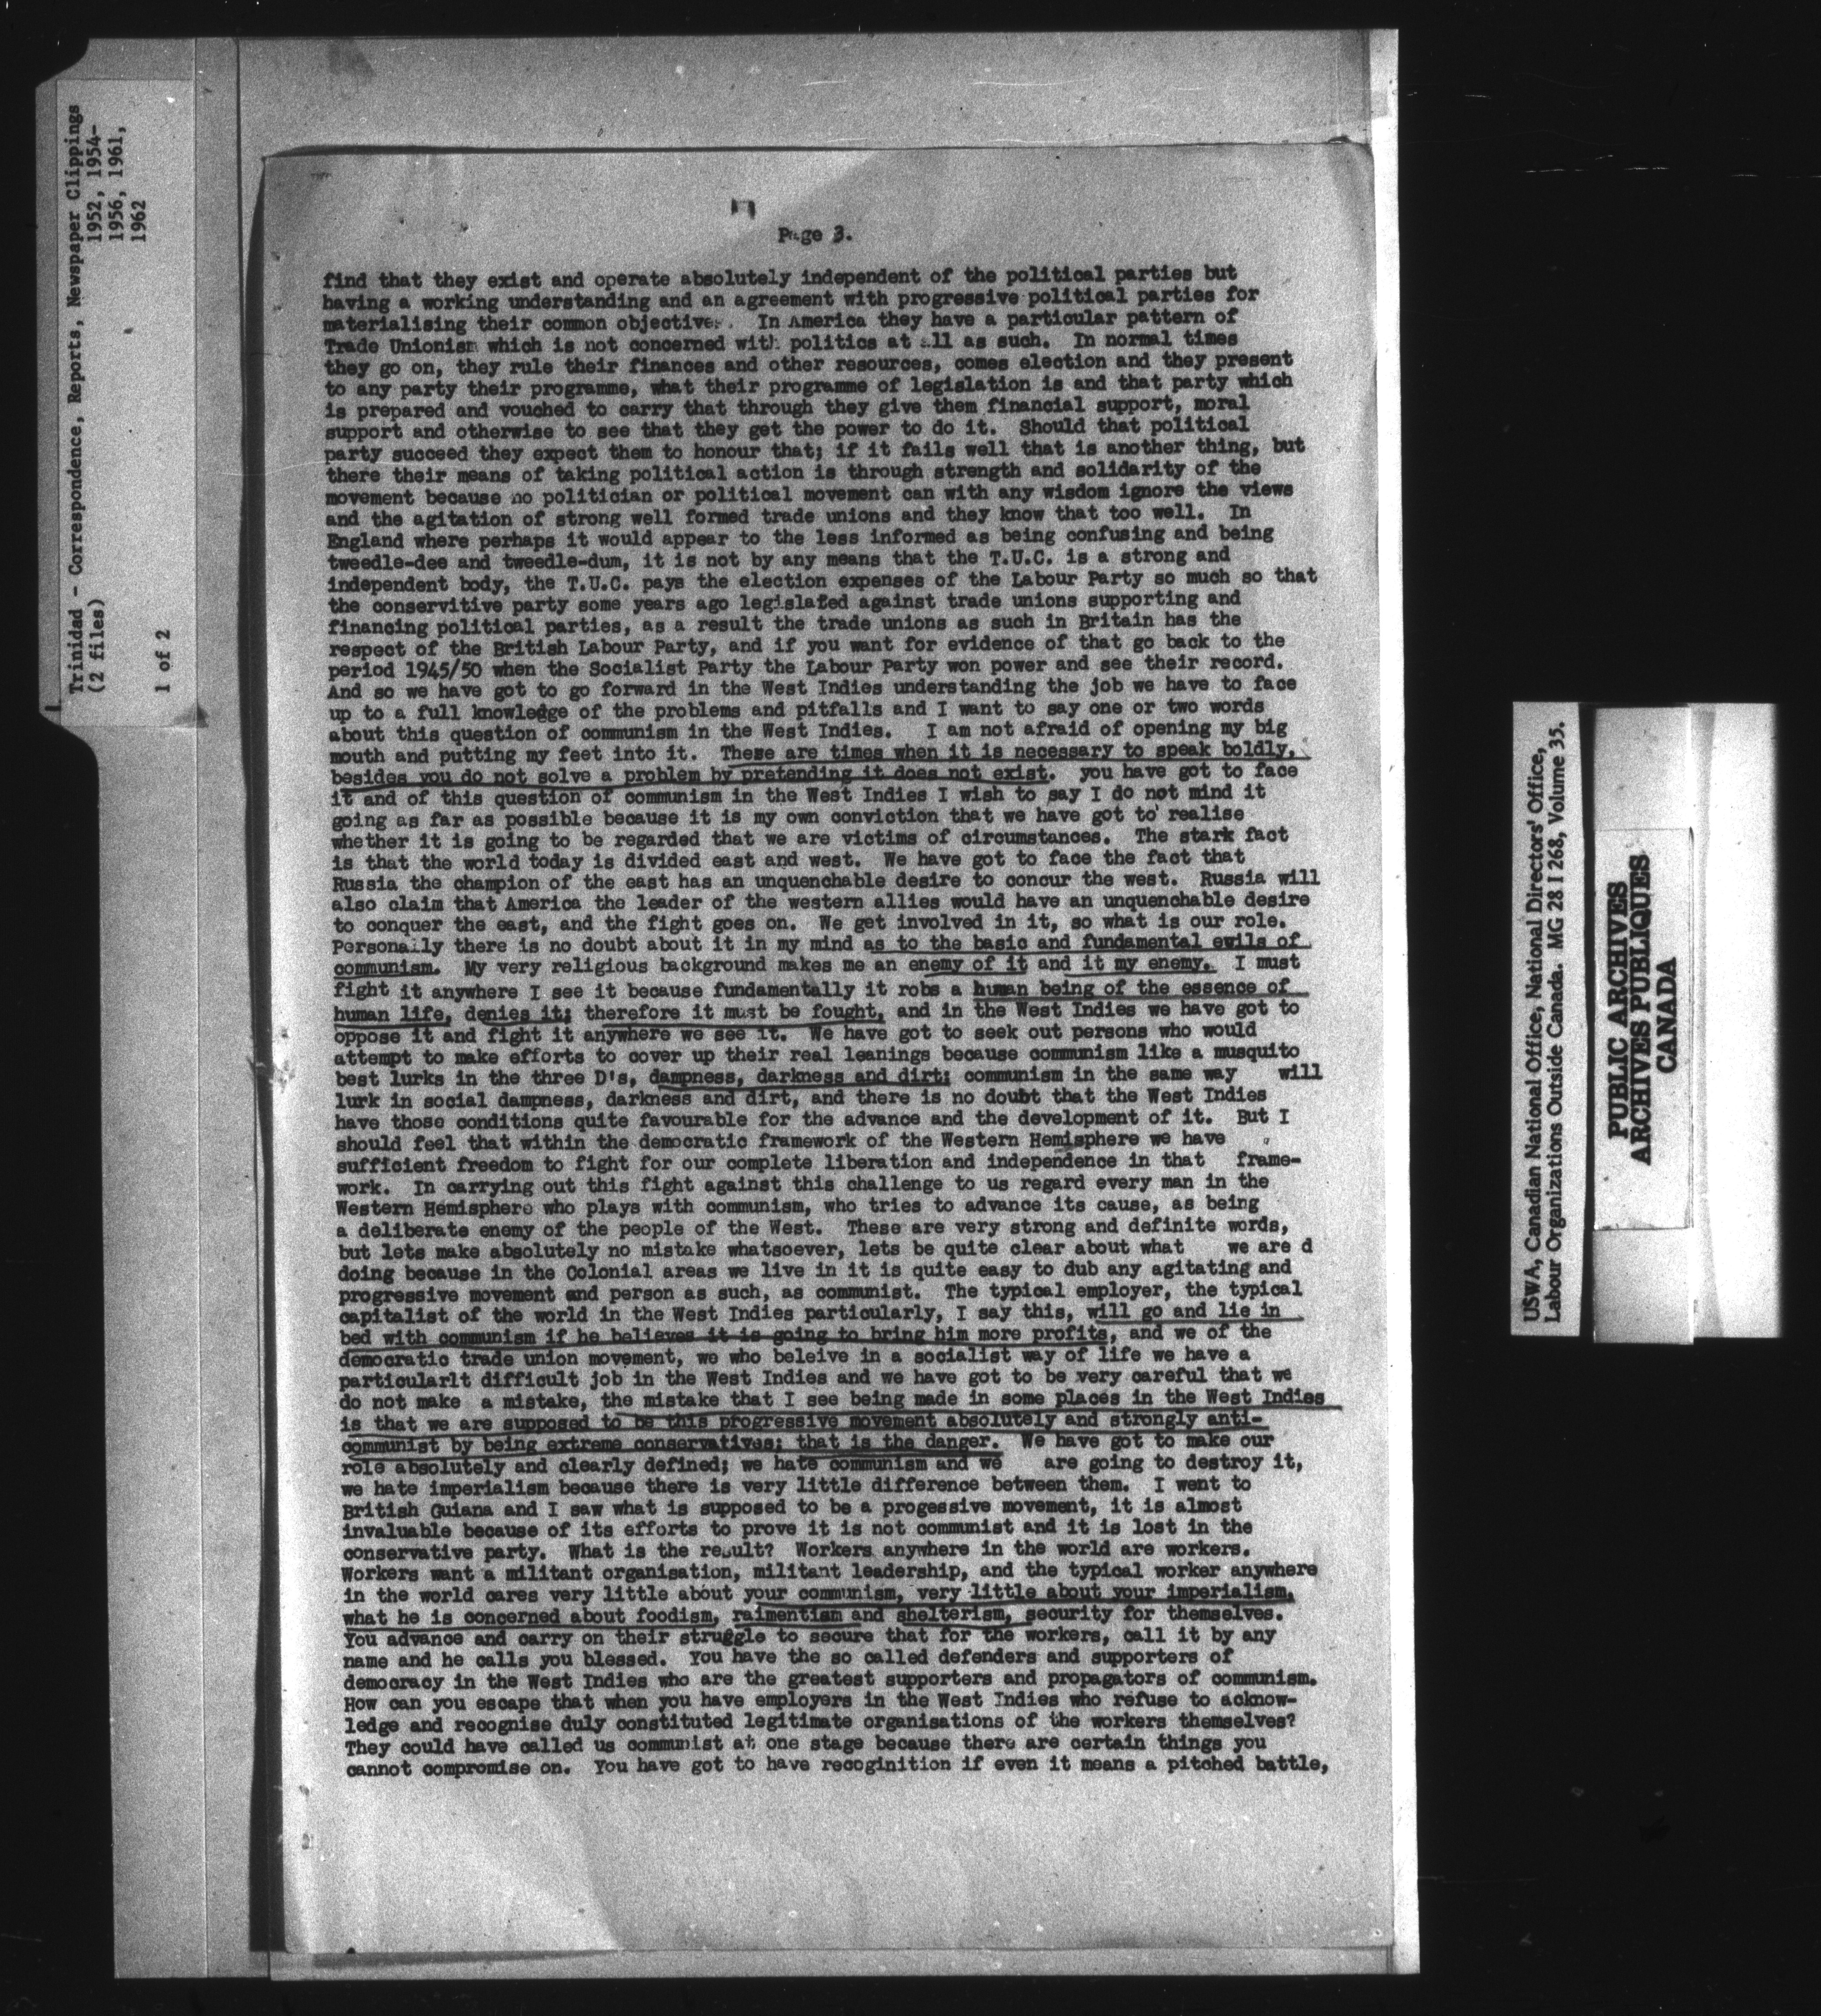 Trinidad - Correspondence, Reports, Newspaper Clippings
(2 files) 1952, 1954-
1956, 1961,
1 of 2 1962
Page 3.
find that they exist and operate absolutely independent of the political parties but
having a working understanding and an agreement with progressive political parties for
materialising their common objective. In America they have a particular pattern of
Trade Unionism which is not concerned with politics at all as such. In normal times
they go on, they rule their finances and other resources, comes election and they present
to any party their programme, what their programme of legislation is and that party which
is prepared and vouched to carry that through they give them financial support, moral
support and otherwise to see that they get the power to do it. Should that political
party succeed they expect them to honour that; if it fails well that is another thing, but
there their means of taking political action is through strength and solidarity of the
movement because no politician or political movement can with any wisdom ignore the views
and the agitation of strong well formed trade unions and they know that too well. In
England where perhaps it would appear to the less informed as being confusing and being
tweedle-dee and tweedle-dum, it is not by any means that the T.U.C. is a strong and
independent body, the T.U.C. pays the election expenses of the Labour Party so much so that
the conservitive party some years ago legislated against trade unions supporting and
financing political parties, as a result the trade unions as such in Britain has the
respect of the British Labour Party, and if you want for evidence of that go back to the
period 1945/50 when the Socialist Party the Labour Party won power and see their record.
And so we have got to go forward in the West Indies understanding the job we have to face
up to a full knowledge of the problems and pitfalls and I want to say one or two words
about this question of communism in the West Indies. I am not afraid of opening my big
mouth and putting my feet into it. These are times when it is necessary to speak boldly,
besides you do not solve a problem by pretending it does not exist. you have got to face
it and of this question of communism in the West Indies I wish to say I do not mind it
going as far as possible because it is my own conviction that we have got to realise
whether it is going to be regarded that we are victims of circumstances. The stark fact
is that the world today is divided east and west. We have got to face the fact that
Russia the champion of the east has an unquenchable desire to concur the west. Russia will
also claim that America the leader of the western allies would have an unquenchable desire
to conquer the east, and the fight goes on. We get involved in it, so what is our role.
Personally there is no doubt about it in my mind as to the basic and fundamental evils of
communism. My very religious background makes me an enemy of it and it my enemy. I must
fight it anywhere I see it because fundamentally it robs a human being of the essence of
human life, denies it; therefore it must be fought, and in the West Indies we have got to
oppose it and fight it anywhere we see it. We have got to seek out persons who would
attempt to make efforts to cover up their real leanings because communism like a musquito
best lurks in the three D's, dampness, darkness and dirt; communism in the same way will
lurk in social dampness, darkness and dirt, and there is no doubt that the West Indies
have those conditions quite favourable for the advance and the development of it. But I
should feel that within the democratic framework of the Western Hemisphere we have
sufficient freedom to fight for our complete liberation and independence in that frame-
work. In carrying out this fight against this challenge to us regard every man in the
Western Hemisphere who plays with communism, who tries to advance its cause, as being
a deliberate enemy of the people of the West. These are very strong and definite words,
but lets make absolutely no mistake whatsoever, lets be quite clear about what we are d
doing because in the Colonial areas we live in it is quite easy to dub any agitating and
progressive movement and person as such, as communist. The typical employer, the typical
capitalist of the world in the West Indies particularly, I say this, will go and lie in
bed with communism if he believes it is going to bring him more profits, and we of the
democratic trade union movement, we who beleive in a socialist way of life we have a
particularlt difficult job in the West Indies and we have got to be very careful that we
do not make a mistake, the mistake that I see being made in some places in the West Indies
is that we are supposed to be this progressive movement absolutely and strongly anti-
communist by being extreme conservatives; that is the danger. We have got to make our
role absolutely and clearly defined; we hate communism and we are going to destroy it,
we hate imperialism because there is very little difference between them. I went to
British Guiana and I saw what is supposed to be a progessive movement, it is almost
invaluable because of its efforts to prove it is not communist and it is lost in the
conservative party. What is the result? Workers anywhere in the world are workers.
Workers want a militant organisation, militant leadership, and the typical worker anywhere
in the world cares very little about your communism, very little about your imperialism,
what he is concerned about foodism, raimentism and shelterism, security for themselves.
You advance and carry on their struggle to secure that for the workers, call it by any
name and he calls you blessed. You have the so called defenders and supporters of
democracy in the West Indies who are the greatest supporters and propagators of communism.
How can you escape that when you have employers in the West Indies who refuse to acknow-
ledge and recognise duly constituted legitimate organisations of the workers themselves?
They could have called us communist at one stage because there are certain things you
cannot compromise on. You have got to have recoginition if even it means a pitched battle,
USWA, Canadian National Office, National Directors' Office,
Labour Organizations Outside Canada. MG 28 I 268, Volume 35.
PUBLIC ARCHIVES
ARCHIVES PUBLIQUES
CANADA